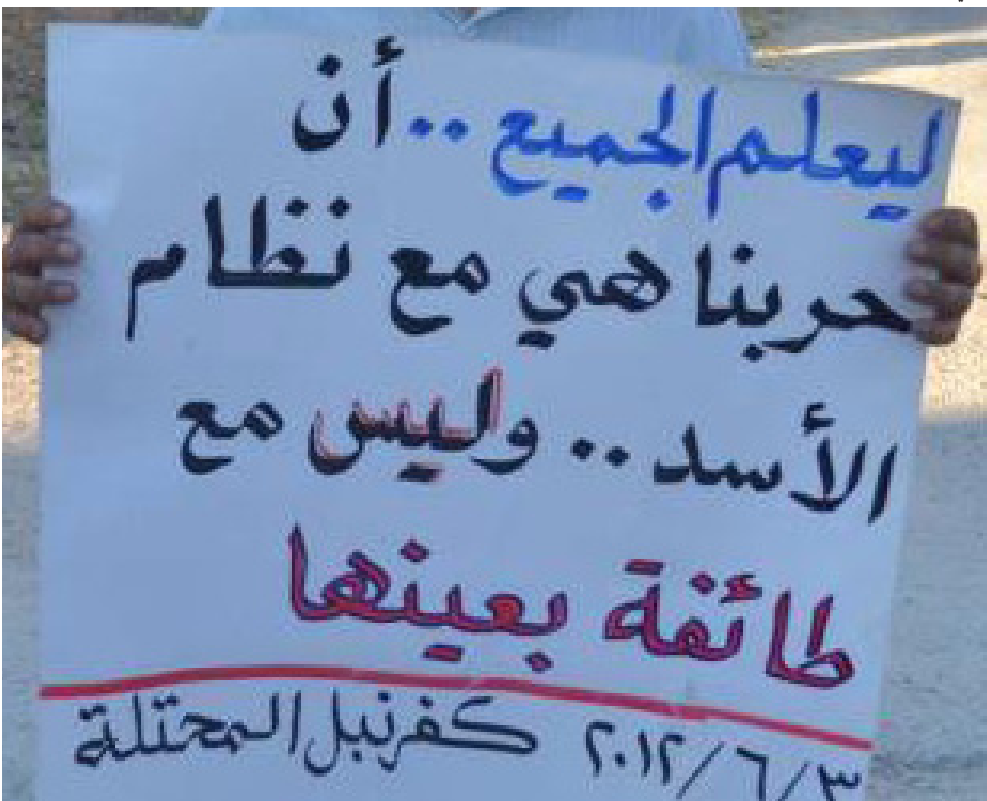 ليعلم الجميع .. أن
حربنا هي مع نظام
الأسد .. وليس مع
طائفة بعينها
٣/٦/٢٠١٢ كفرنبل المحتلة